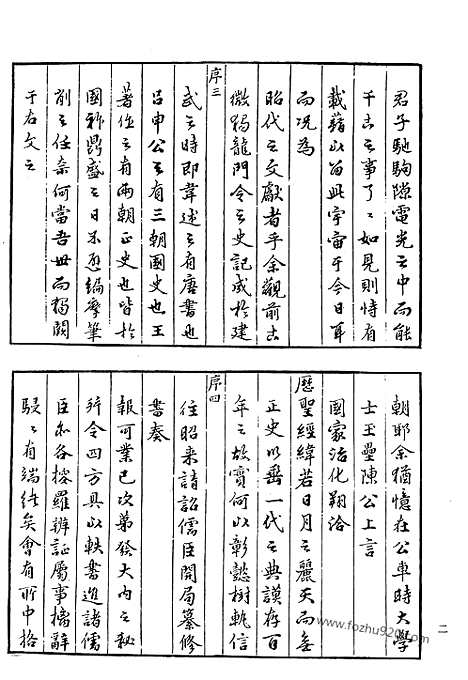 君子馳駒隙電光之中而能
千古之事了了如見則恃有
載藉以留此宇宙于今日耳
而况為
昭代之文獻者乎余觀前古
微獨龍門令之史記成於建
序三
武之時即韋述之有唐書也
呂申公之有三朝國史也王
著作之有兩朝正史也皆於
國祚鼎盛之日不忍編摩筆
削之任奈何當吾世而獨闕
于右文之
朝耶余猶憶在公車時大學
士王壘陳公上言
國家治化翔洽
歷聖經緯若日月之麗天而無
正史以垂一代之典謨存百
序四
年之故實何以彰懿樹軌信
往昭來請詔儒臣開局纂修
書奏
報可業已次第發大內之秘
行令四方具以軼書進諸儒
臣亦各捃羅辨証屬事摛辭
駸駸有端緒矣會有所中格
二
www.fozhu920.com